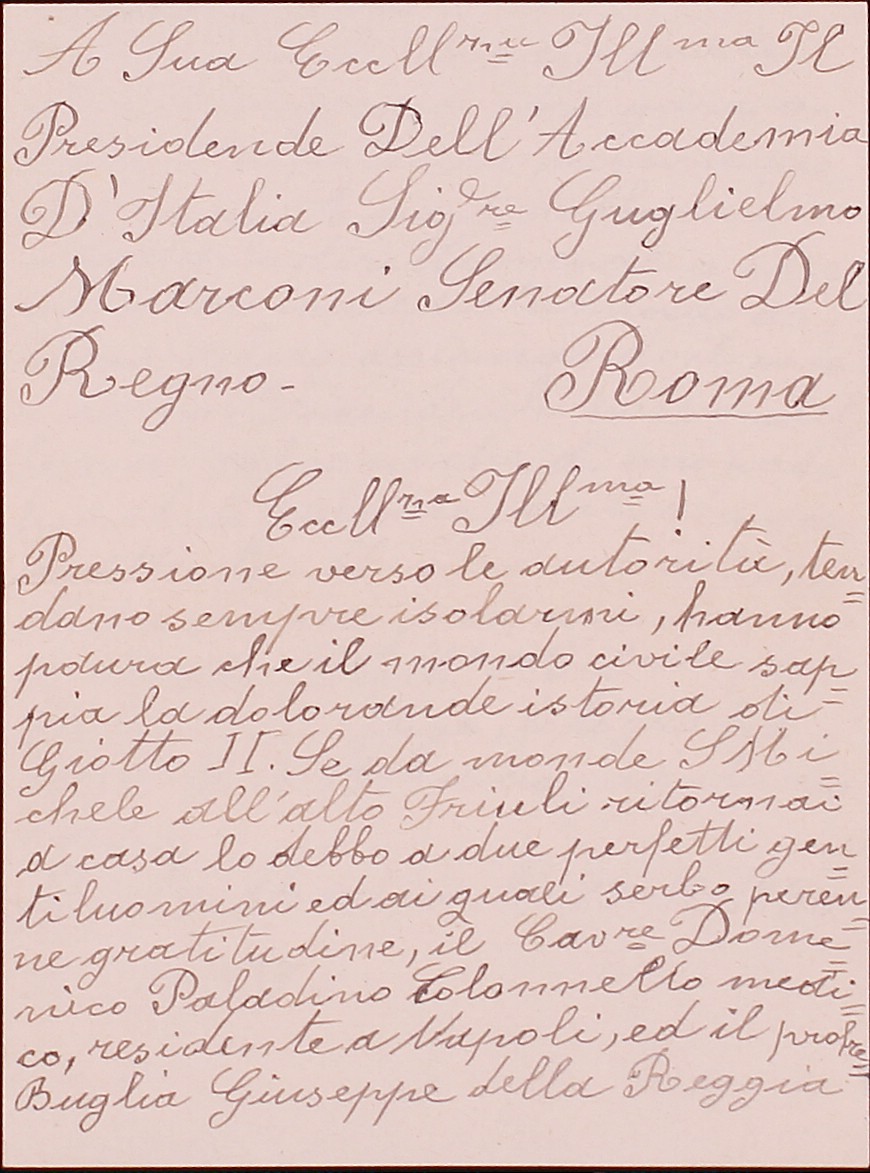 A Sua Eccll rna Ill ma Il
Presidende Dell'Accademia
D'Italia Sig.re Guglielmo
Marconi Senatore Del
Regno- Roma
Eccll rna Ill ma!
Pressione verso le autorità, ten=
dano sempre isolarmi, hanno
paura che il mondo civile sap=
pia la dolorande istoria di
Giotto II. Se da monde S Mi=
chele all'alto Friuli ritornai
a casa lo debbo a due perfetti gen=
tiluomini ed ai quali serbo peren=
ne gratitudine, il Cavre Dome=
nico Paladino Colonnello medi=
co, residente a Napoli, ed il profre=
Buglia Giuseppe della Reggia